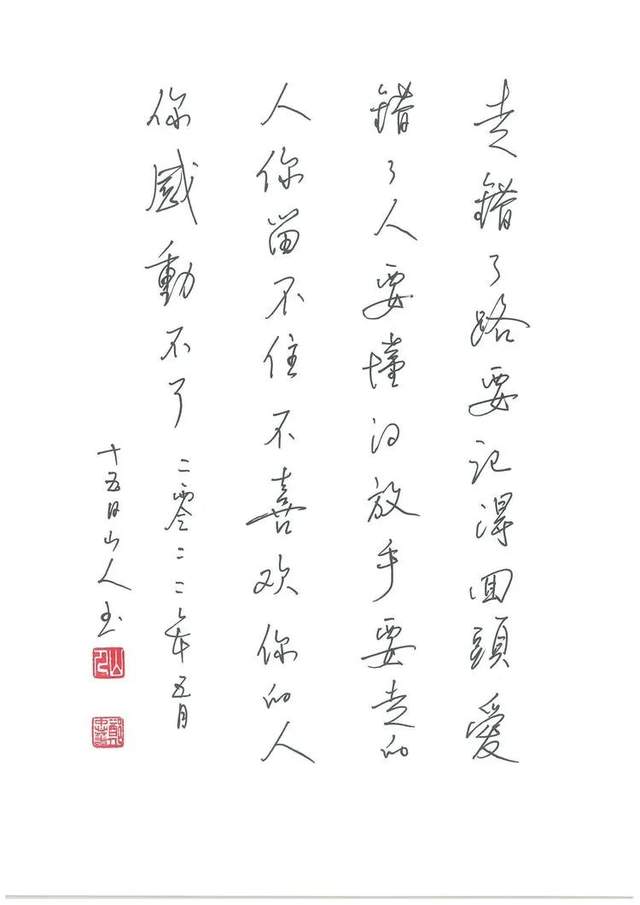 走錯了路要记得回頭愛
錯了人要懂得放手要走的
人你留不住不喜欢你的人
你感動不了
二零二二年五月
十五日山人书
山人